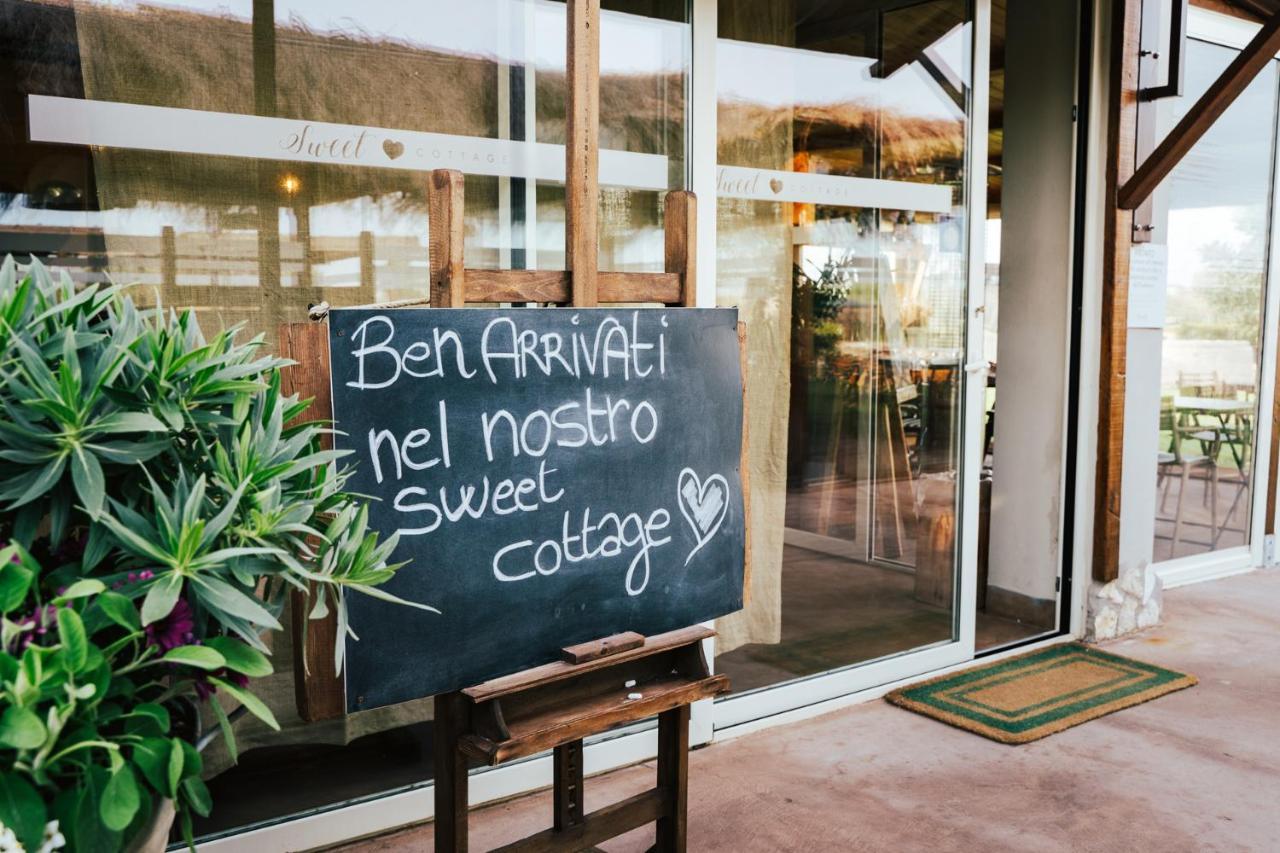 Sweet COTTAGE
Sweet COTTAGE
Ben ARRivAti
nel nostro
sweet
cottage